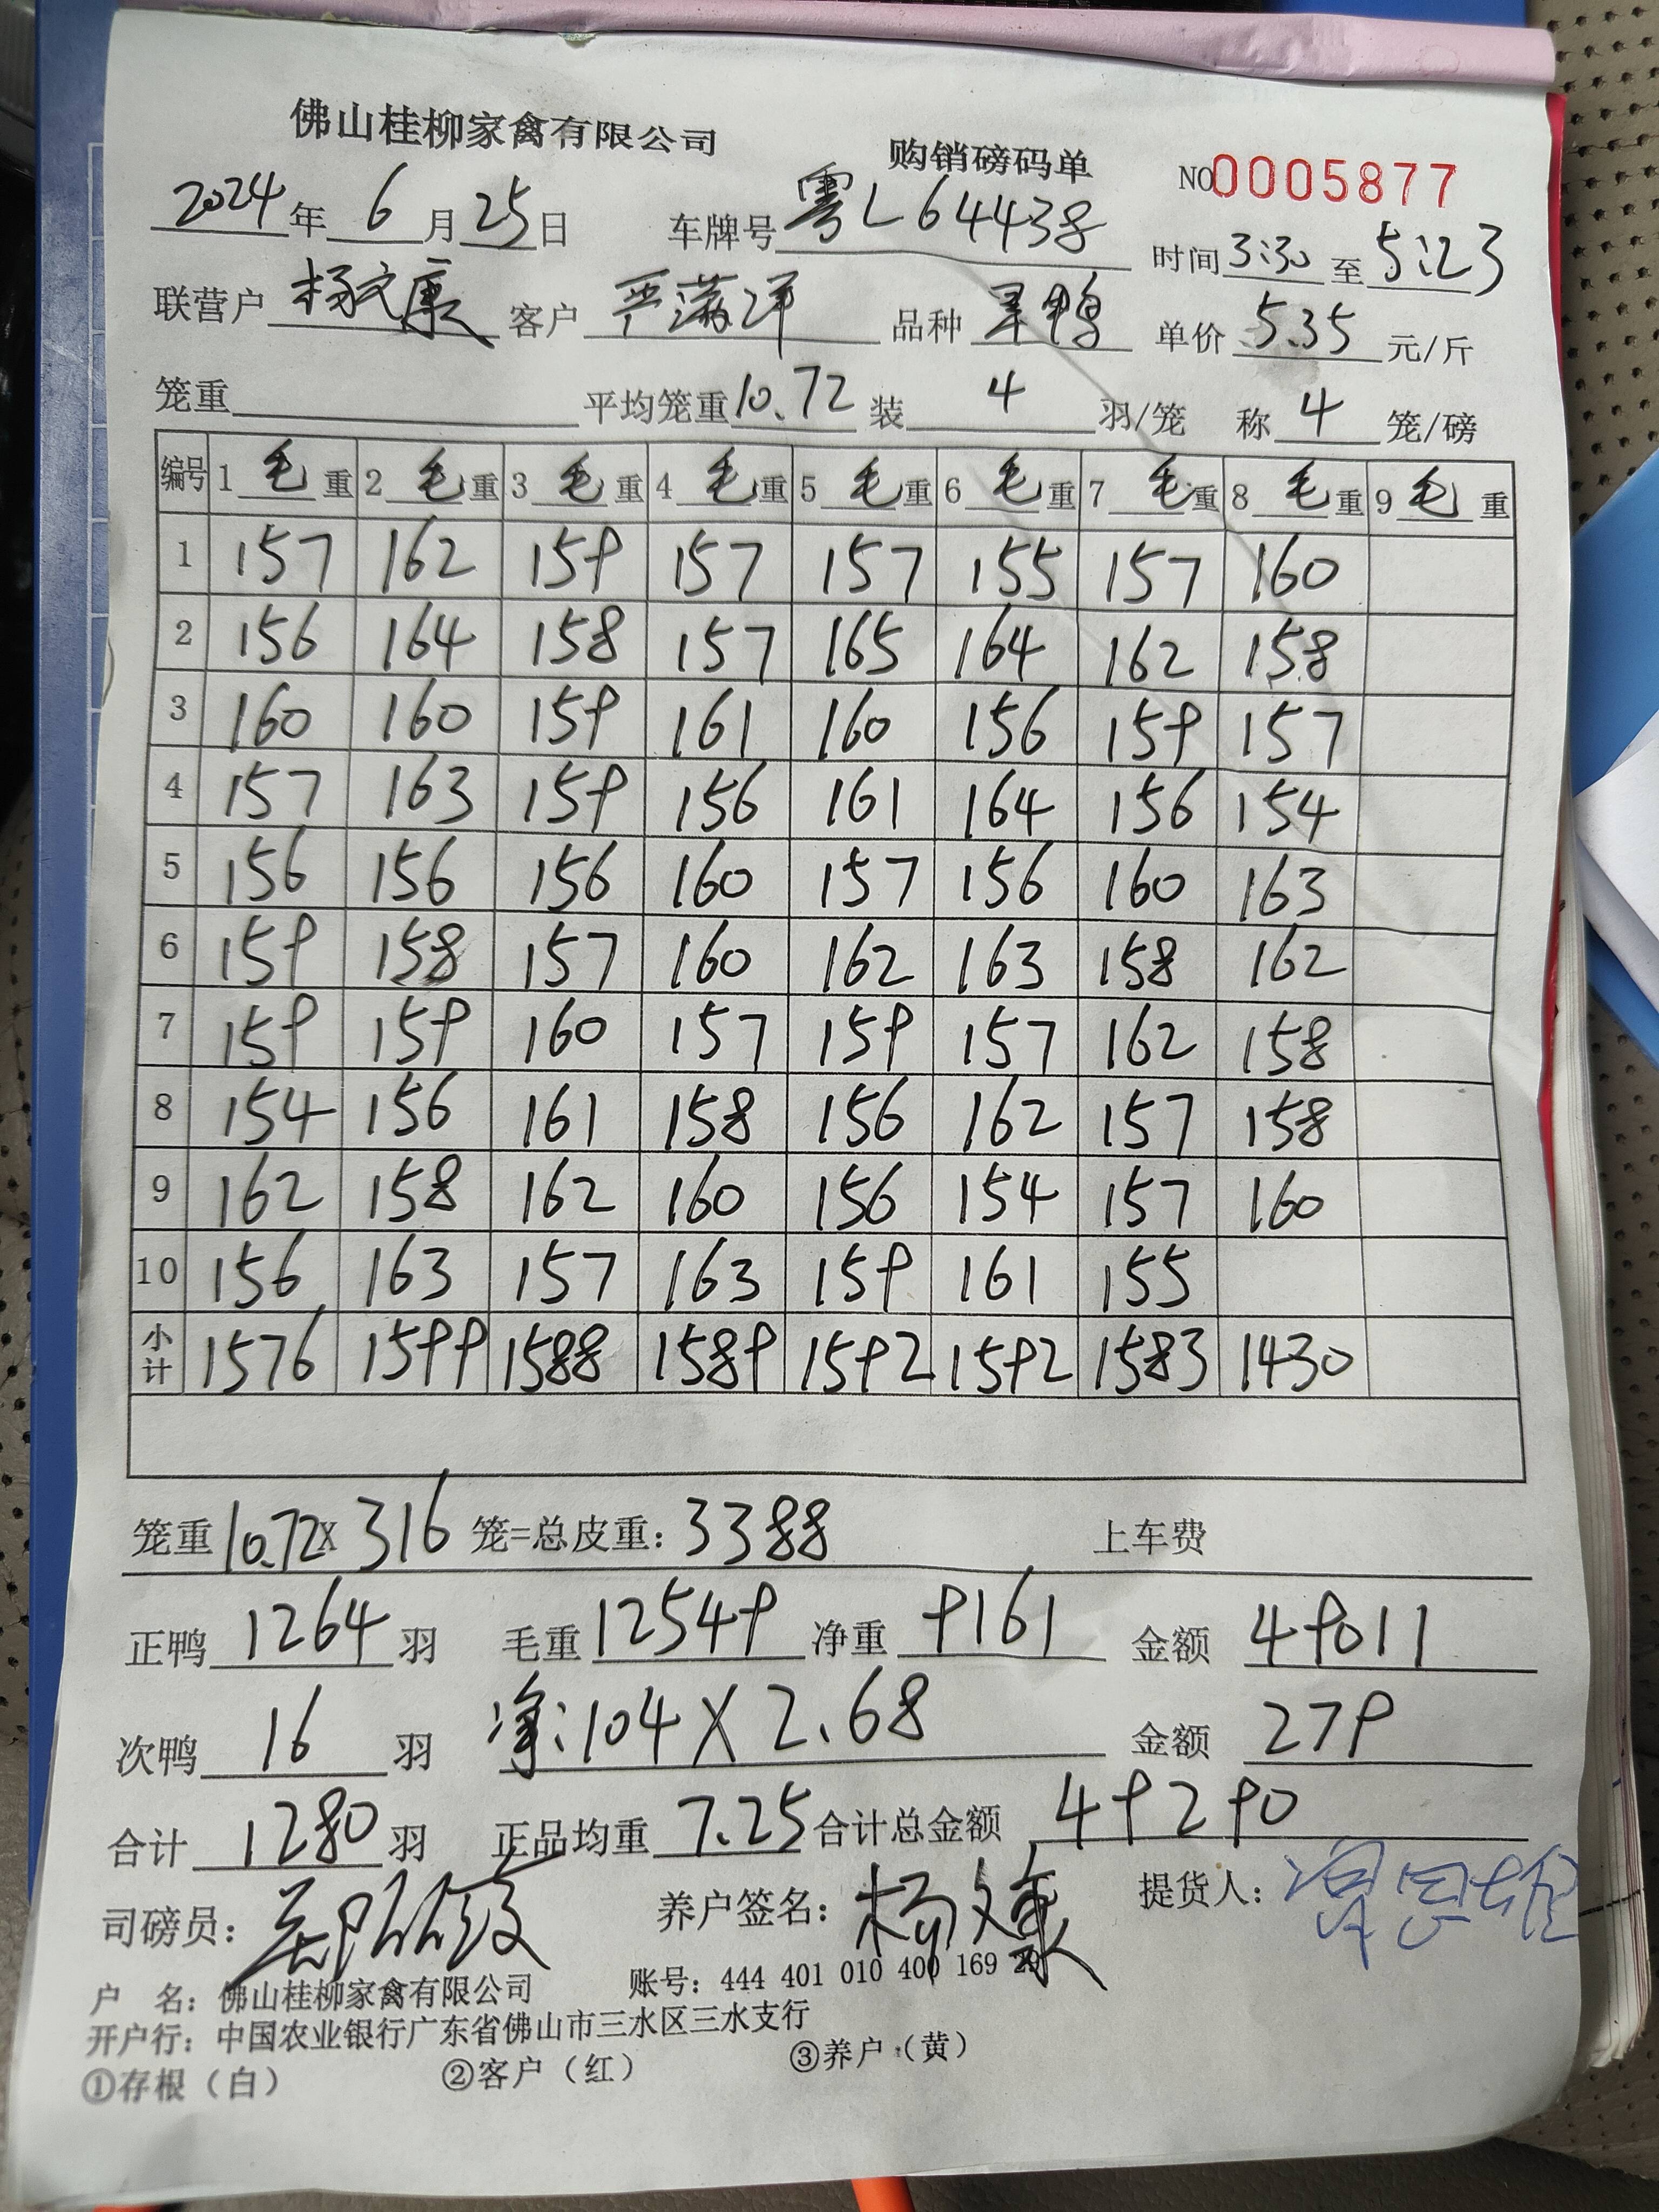 佛山桂柳家禽有限公司 购销磅码单 NO0005877
2024年 6月25日 车牌号 粤L64438 时间 3:30 至 5:23
联营户 杨文康 客户 严满洋 品种 旱鸭 单价 5.35 元/斤
笼重 平均笼重 10.72 装 4 羽/笼 称 4 笼/磅
编号 1 毛 重 2 毛 重 3 毛 重 4 毛 重 5 毛 重 6 毛 重 7 毛 重 8 毛 重 9 毛 重
1 157 162 159 157 157 155 157 160
2 156 164 158 157 165 164 162 158
3 160 160 159 161 160 156 159 157
4 157 163 159 156 161 164 156 154
5 156 156 156 160 157 156 160 163
6 159 158 157 160 162 163 158 162
7 159 159 160 157 159 157 162 158
8 154 156 161 158 156 162 157 158
9 162 158 162 160 156 154 157 160
10 156 163 157 163 159 161 155
小计 1576 1599 1588 1589 1592 1592 1583 1430
笼重 10.72 X 316 笼=总皮重: 3388 上车费
正鸭 1264 羽 毛重 12549 净重 9161 金额 49011
次鸭 16 羽 净:104 X 2.68 金额 279
合计 1280 羽 正品均重 7.25 合计总金额 49290
司磅员: 养户签名: 杨文康 提货人:
户 名: 佛山桂柳家禽有限公司 账号: 444 401 010 400 169 29
开户行: 中国农业银行广东省佛山市三水区三水支行
①存根（白） ②客户（红） ③养户（黄）